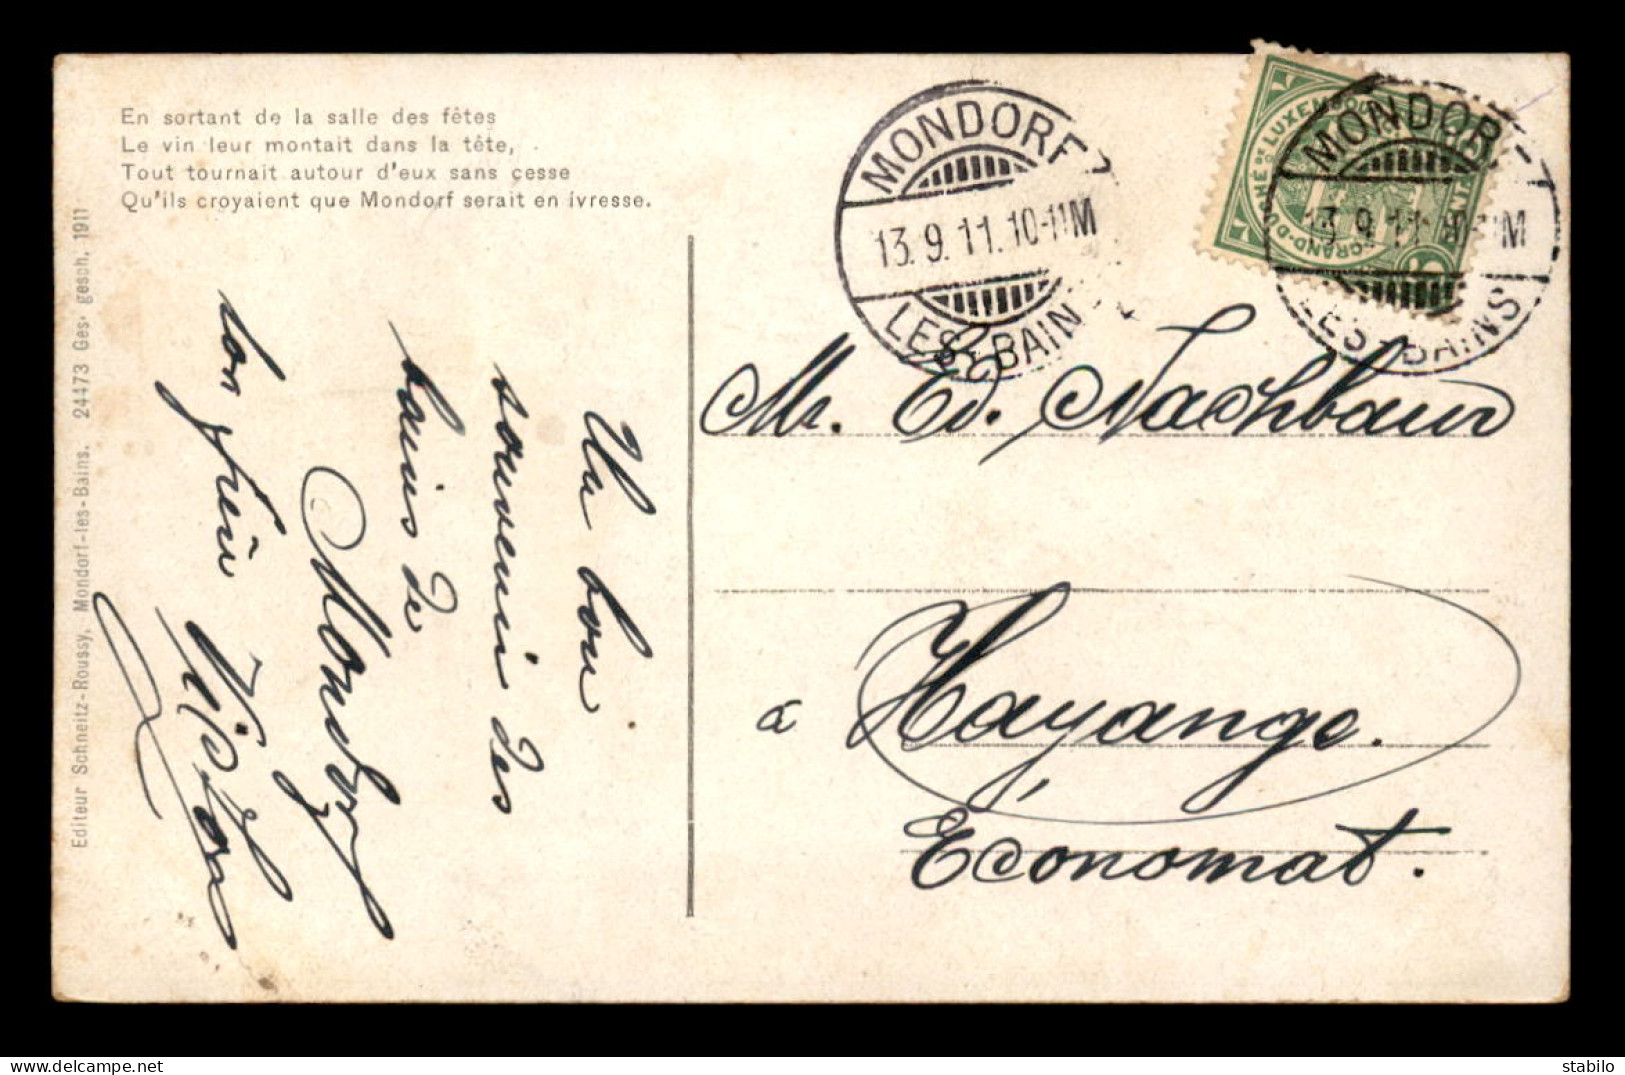 En sortant de la salle des fêtes
Le vin leur montait dans la tête,
Tout tournait autour d'eux sans cesse
Qu'ils croyaient que Mondorf serait en ívresse.
Editeur Schneitz-Roussy, Mondorf-les-Bains. 24473 Ges. gesch, 1911
Un bon
souvenir des
bains de
Mondorf
ton frère
MONDORF
13.9.11.10-11M
LES-BAIN
GRAND-DUCHÉ DE LUXEMBOURG
MONDOR
13.9.11 11M
LES-BAINS
Mr. Ed. Nachbaur
à Hayange.
Économat.
delcampe.net
stabilo